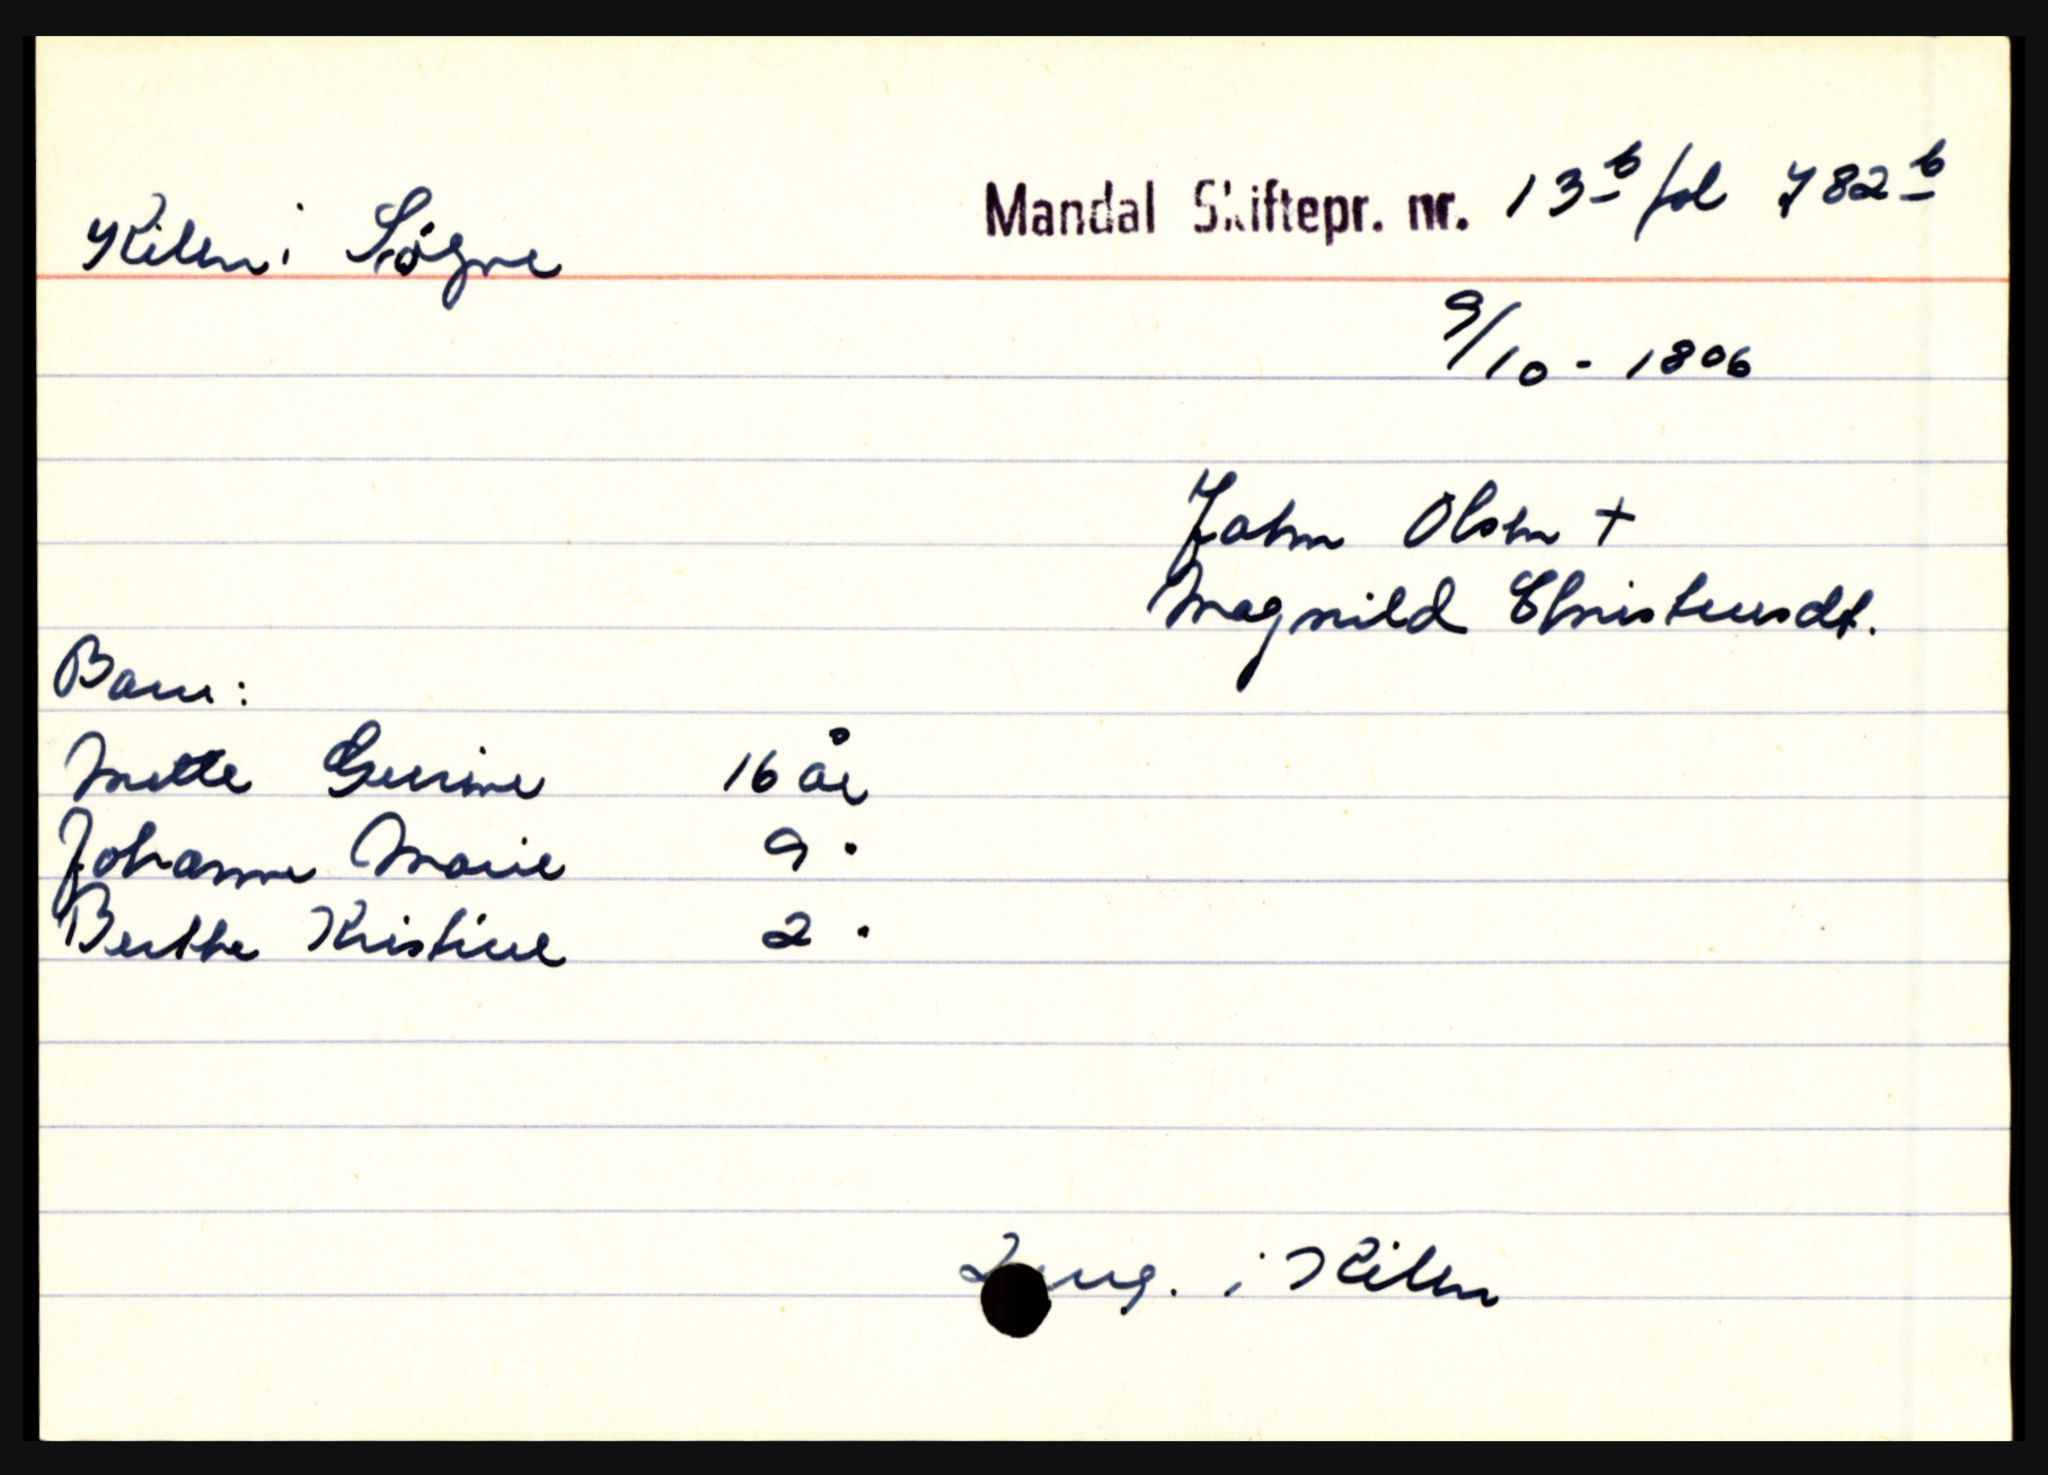 Kilen i Søgne
Mandal Skiftepr. nr. 13b fol 782b
9/10 - 1806
Jahn Olsen +
Magnild Christensdt.
Barn:
Mette Gurine 16 år
Johanne Marie 9 "
Berthe Kristine 2 "
i Kilen